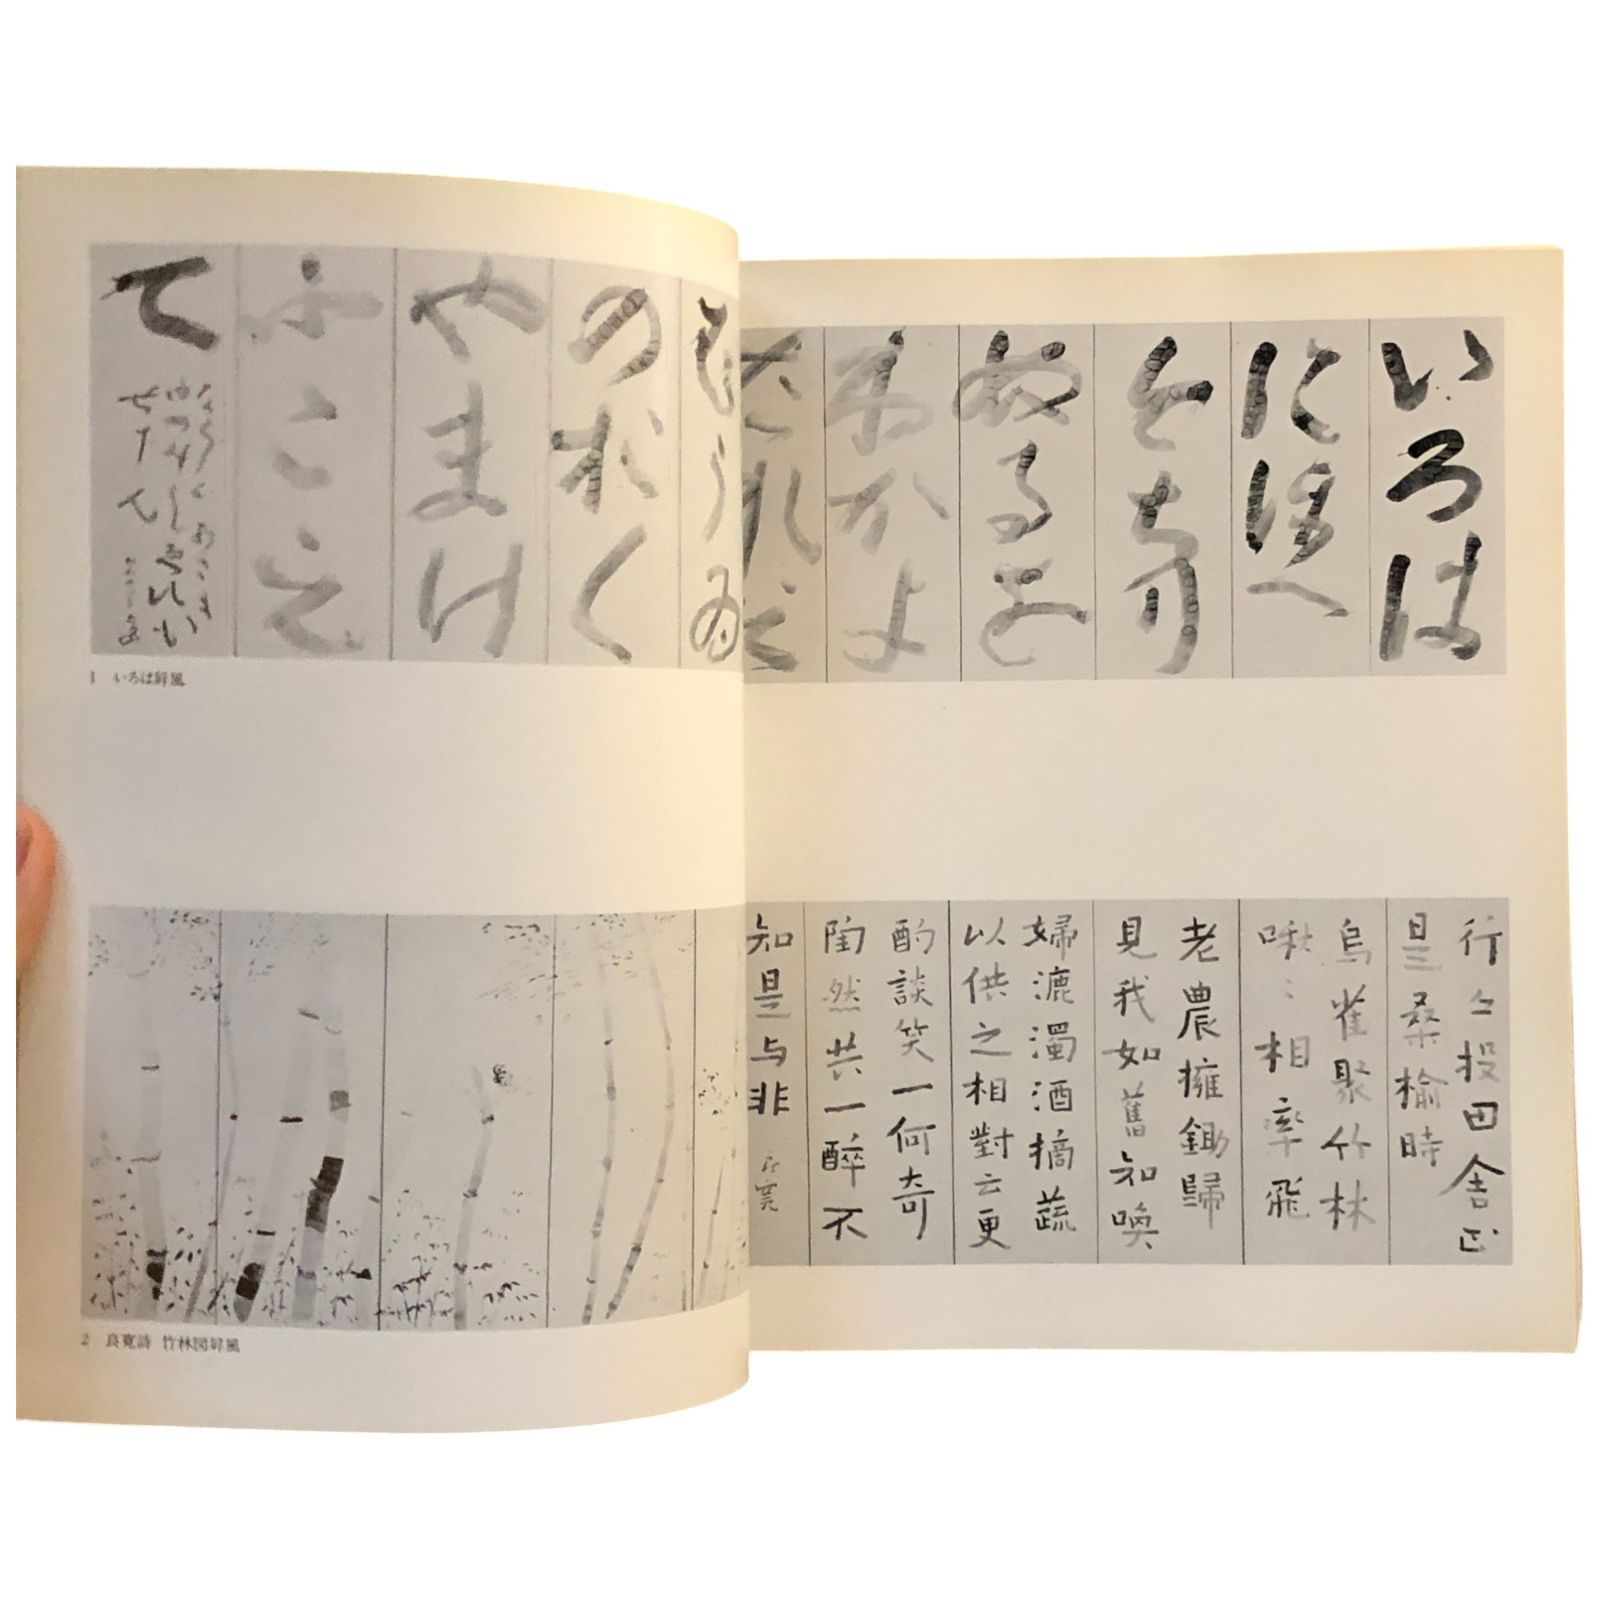 いろは
にほへ
とちり
ぬるを
わかよ
たれそ
むうゐ
のおく
やまけ
ふこえ
て
1 いろは屏風
行々投田舎正
是桑榆時
鳥雀聚竹林
啾々相率飛
老農擁鋤歸
見我如舊知喚
婦漉濁酒摘蔬
以供之相對云更
酌談笑一何奇
陶然共一醉不
知是与非
2 良寛詩 竹林図屏風